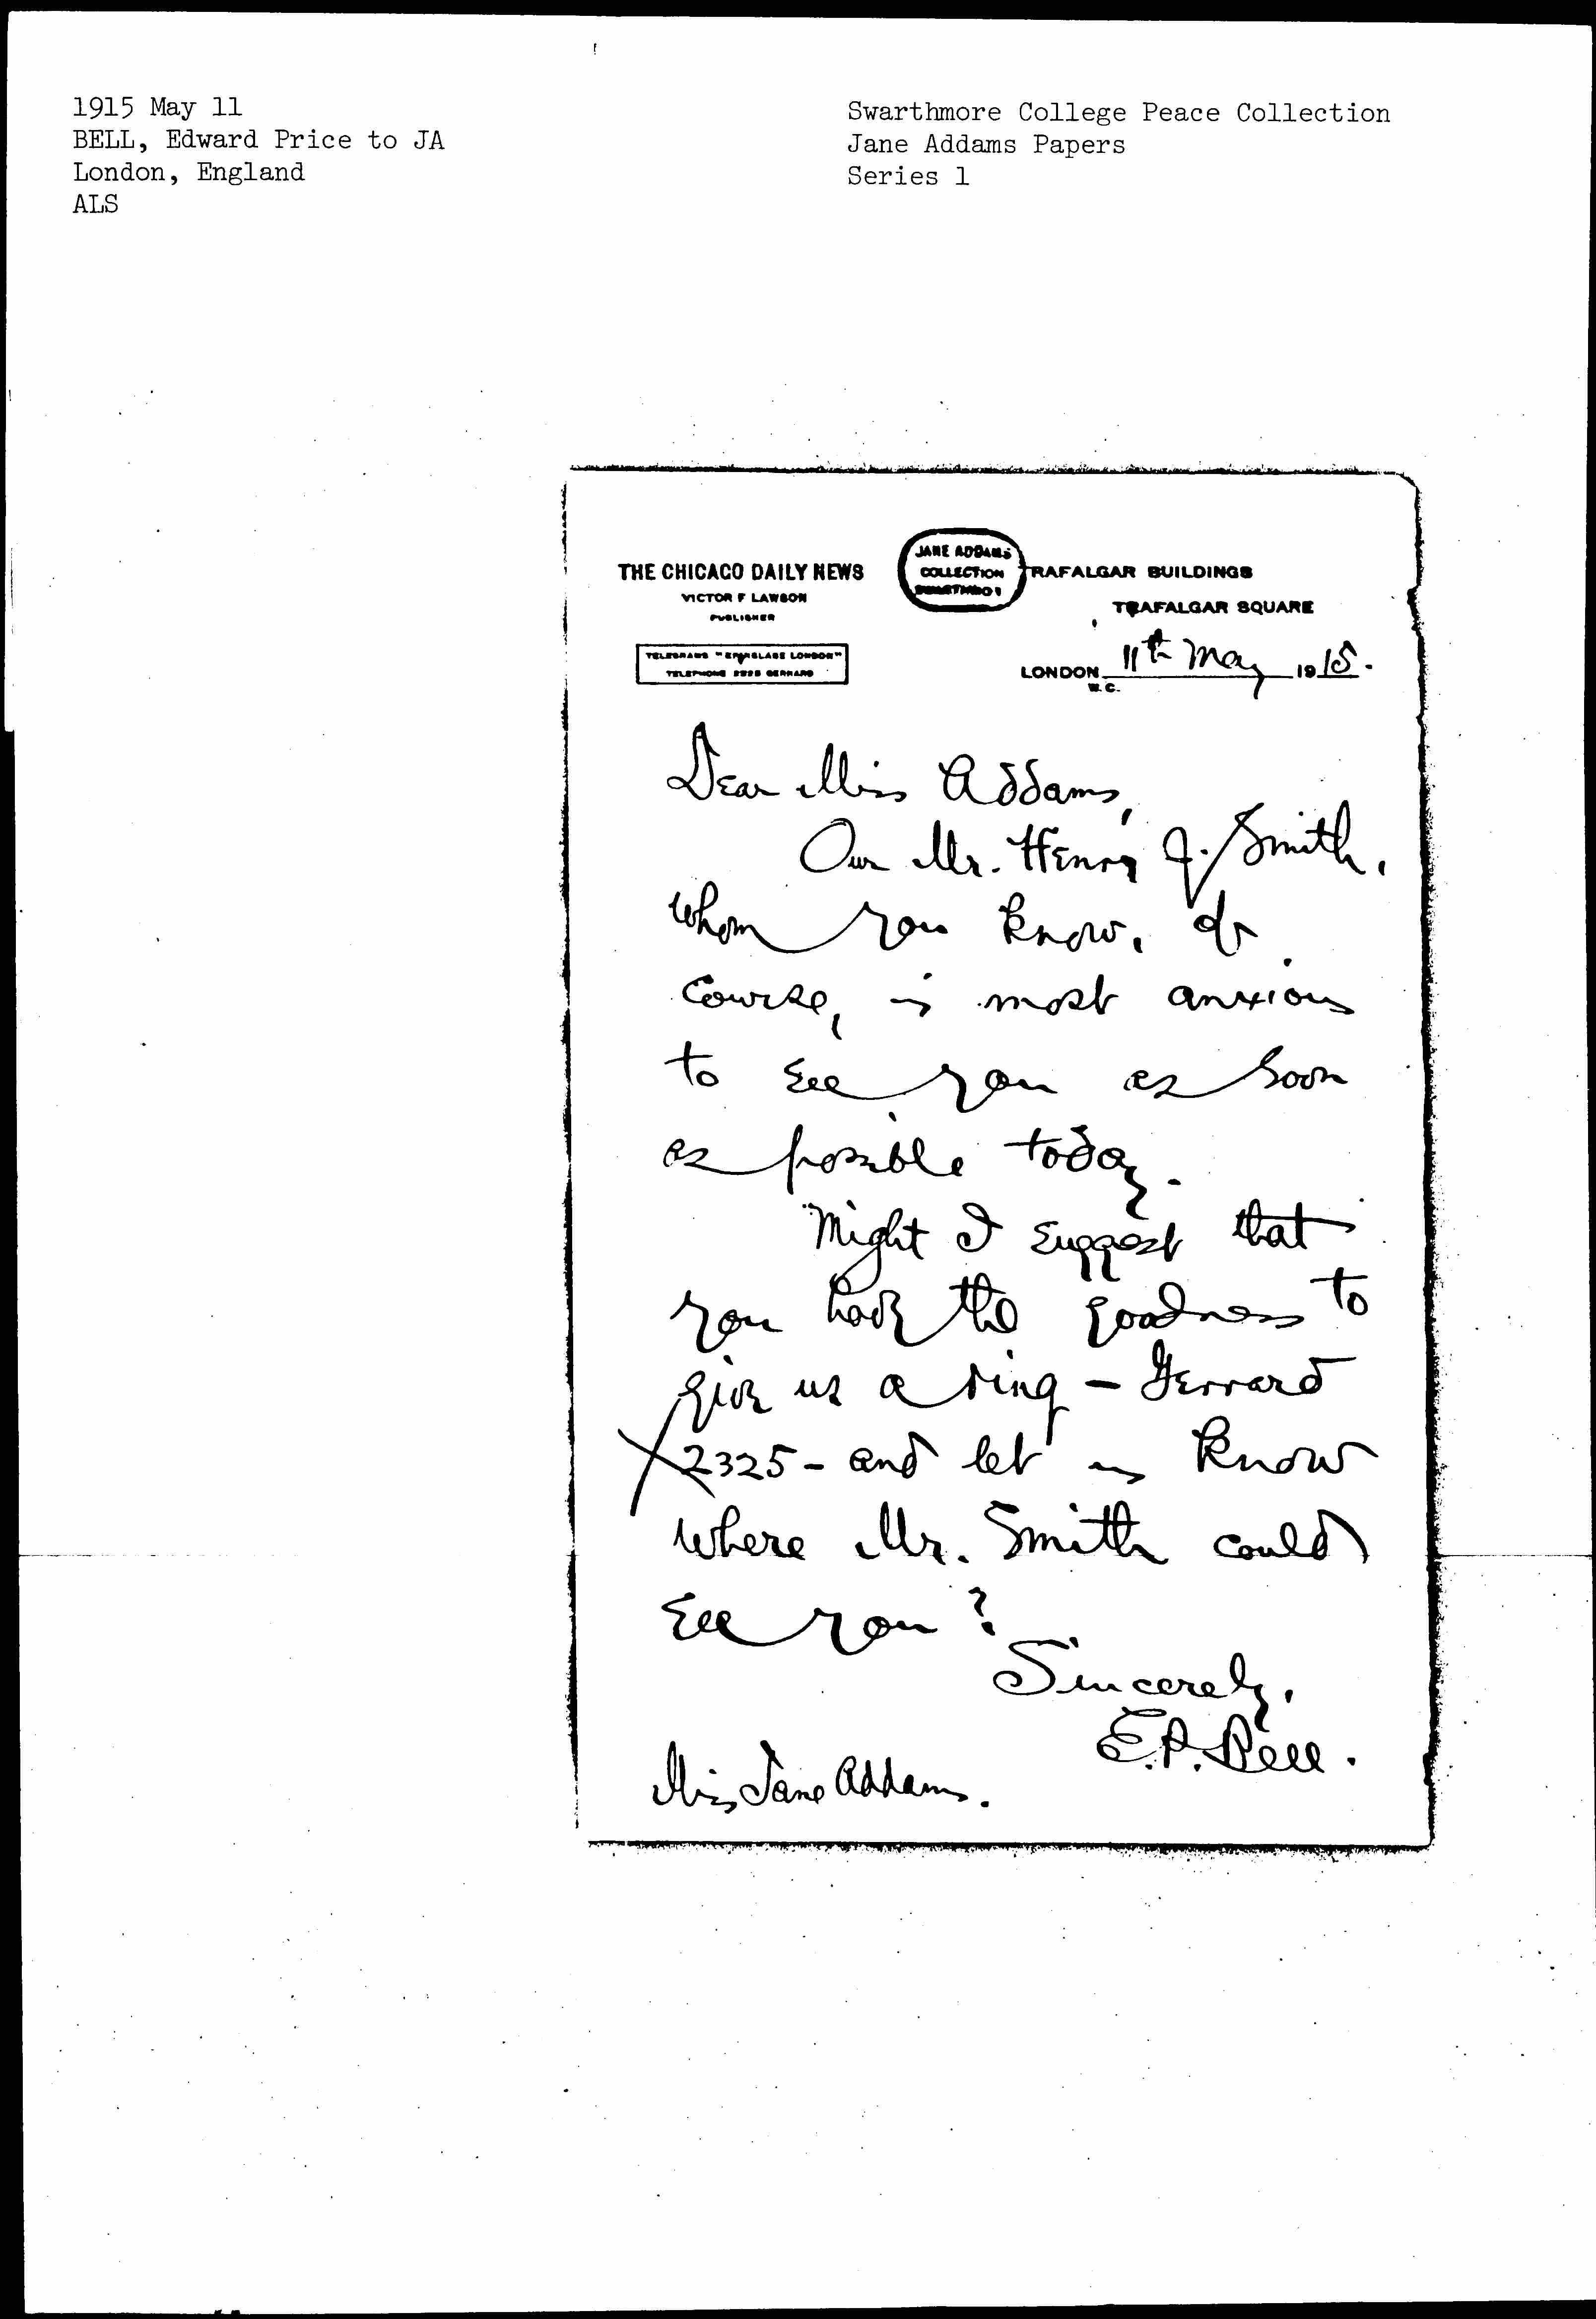 1915 May 11
BELL, Edward Price to JA
London, England
ALS
Swarthmore College Peace Collection
Jane Addams Papers
Series 1
THE CHICAGO DAILY NEWS
VICTOR F LAWSON
PUBLISHER
JANE ADDAMS
COLLECTION
TRAFALGAR BUILDINGS
TRAFALGAR SQUARE
TELEGRAMS LONDON"
TELEPHONE GERRARD
LONDON 11th May 1915.
W.C.
Dear Miss Addams,
Our Mr. Henry J. Smith,
whom you know, of
course, is most anxious
to see you as soon
as possible today.
Might I suggest that
you have the goodness to
give us a ring - Gerrard
2325 - and let us know
where Mr. Smith could
see you?
Sincerely,
E.P. Bell.
Miss Jane Addams.